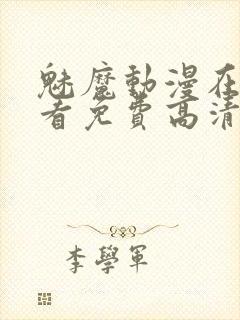 魅魔動漫在
看免費高清
李學軍